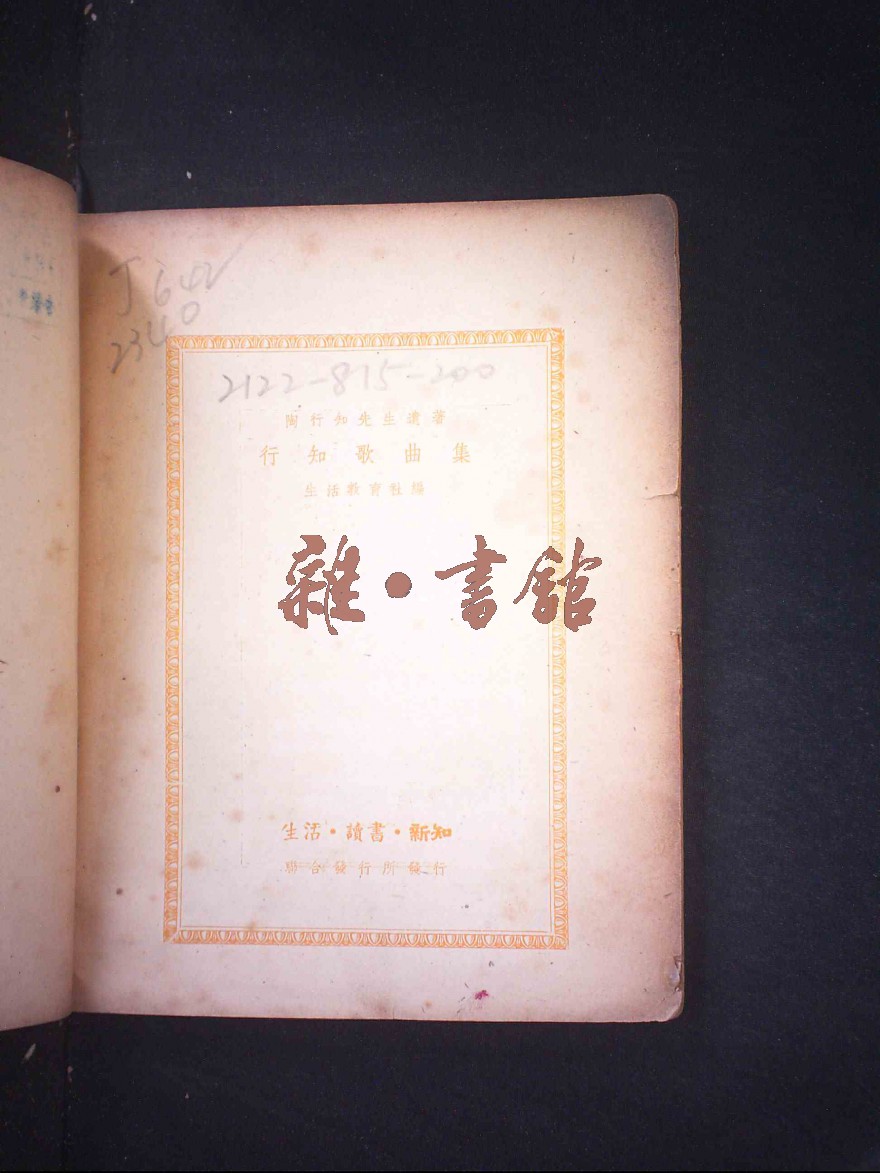 J642
2340
2122-815-200
陶行知先生遺著
行知歌曲集
生活教育社編
雜·書館
生活·讀書·新知
聯合發行所發行